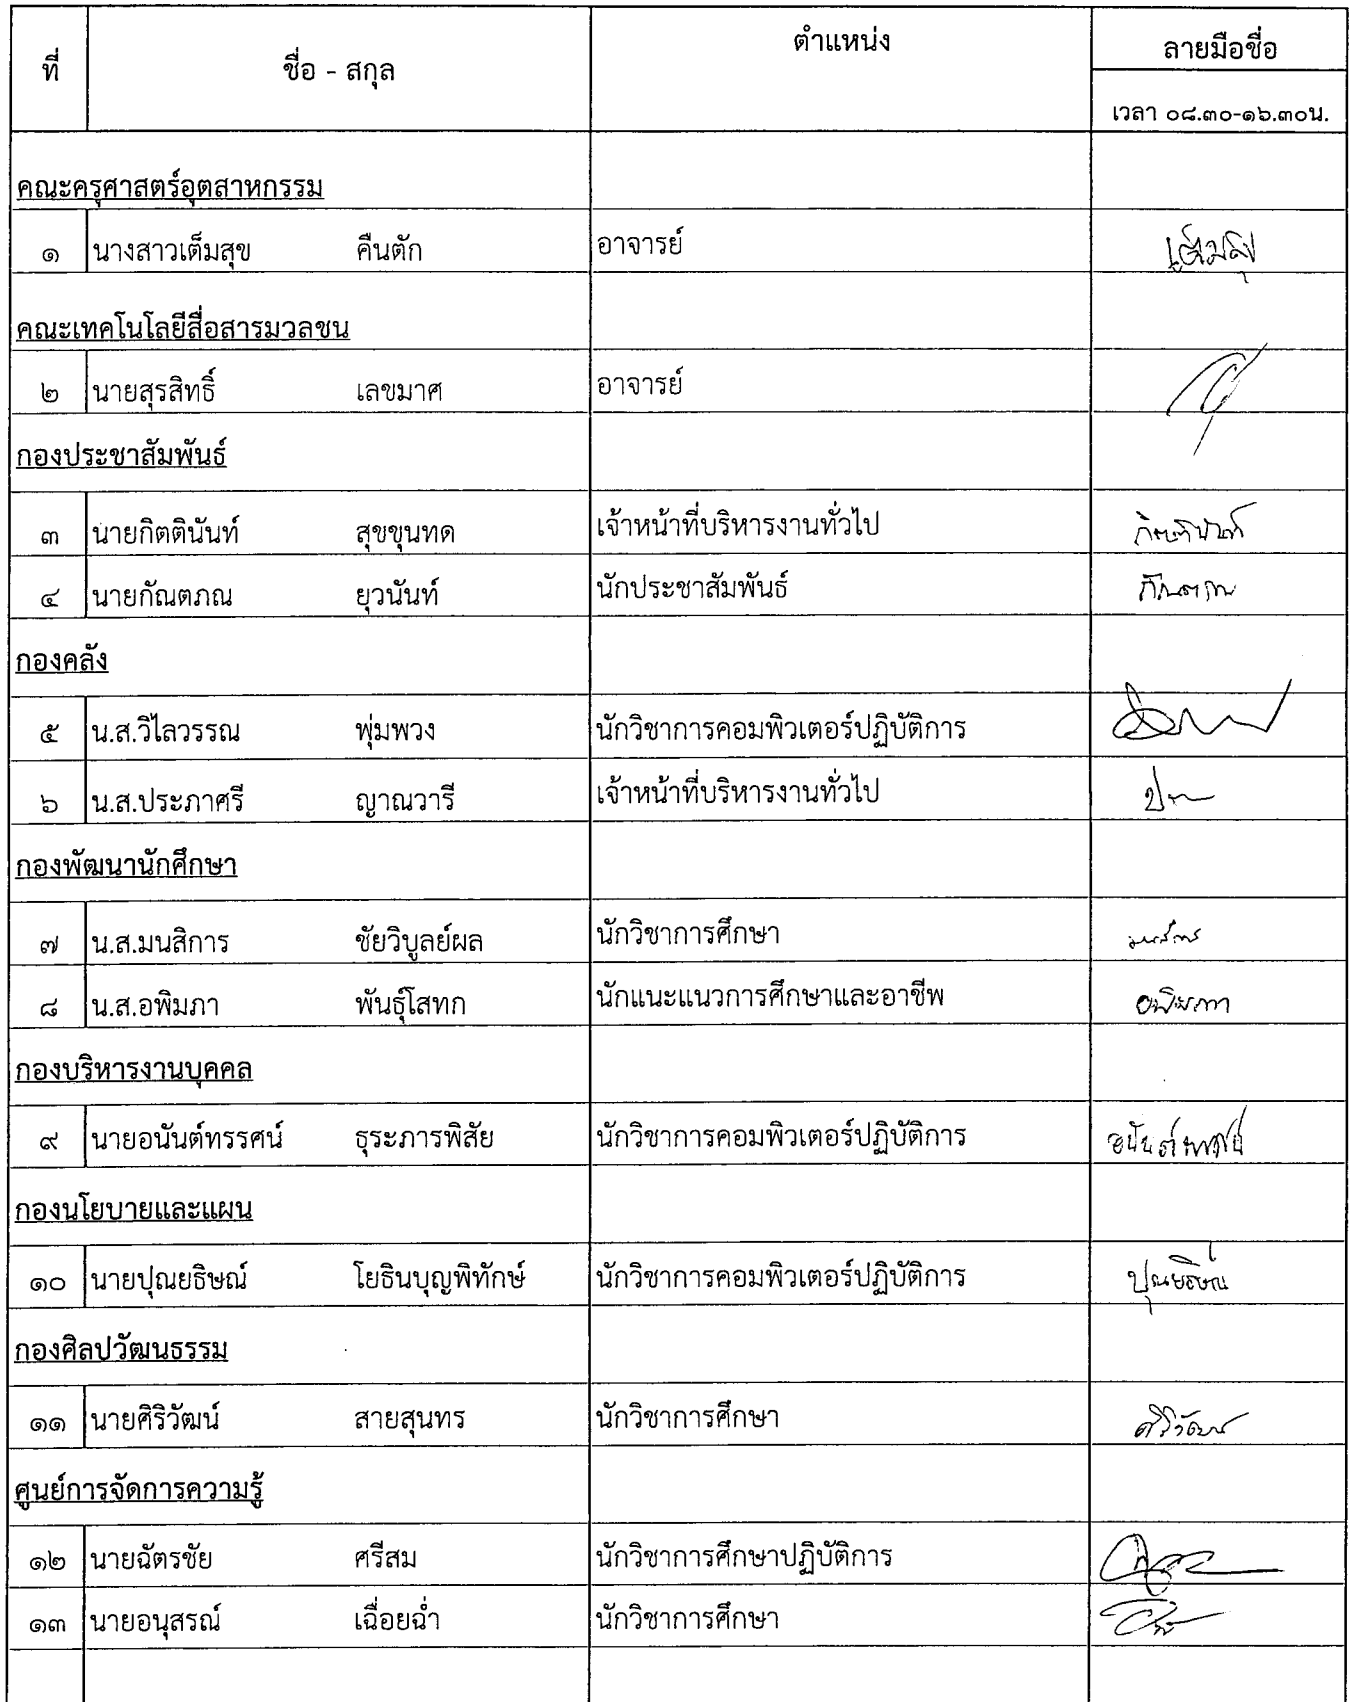 ที่ ชื่อ - สกุล ตำแหน่ง ลายมือชื่อ
เวลา ๐๘.๓๐-๑๖.๓๐น.
คณะครุศาสตร์อุตสาหกรรม
๑ นางสาวเต็มสุข คืนตัก อาจารย์ เต็มสุข
คณะเทคโนโลยีสื่อสารมวลชน
๒ นายสุรสิทธิ์ เลขมาศ อาจารย์
กองประชาสัมพันธ์
๓ นายกิตตินันท์ สุขขุนทด เจ้าหน้าที่บริหารงานทั่วไป กิตตินันท์
๔ นายกัณตภณ ยุวนันท์ นักประชาสัมพันธ์ กัณตภณ
กองคลัง
๕ น.ส.วิไลวรรณ พุ่มพวง นักวิชาการคอมพิวเตอร์ปฏิบัติการ
๖ น.ส.ประภาศรี ญาณวารี เจ้าหน้าที่บริหารงานทั่วไป
กองพัฒนานักศึกษา
๗ น.ส.มนสิการ ชัยวิบูลย์ผล นักวิชาการศึกษา มนสิการ
๘ น.ส.อพิมภา พันธุ์โสทก นักแนะแนวการศึกษาและอาชีพ อพิมภา
กองบริหารงานบุคคล
๙ นายอนันต์ทรรศน์ ธุระภารพิสัย นักวิชาการคอมพิวเตอร์ปฏิบัติการ อนันต์ทรรศน์
กองนโยบายและแผน
๑๐ นายปุณยธิษณ์ โยธินบุญพิทักษ์ นักวิชาการคอมพิวเตอร์ปฏิบัติการ ปุณยธิษณ์
กองศิลปวัฒนธรรม
๑๑ นายศิริวัฒน์ สายสุนทร นักวิชาการศึกษา ศิริวัฒน์
ศูนย์การจัดการความรู้
๑๒ นายฉัตรชัย ศรีสม นักวิชาการศึกษาปฏิบัติการ
๑๓ นายอนุสรณ์ เฉื่อยฉ่ำ นักวิชาการศึกษา